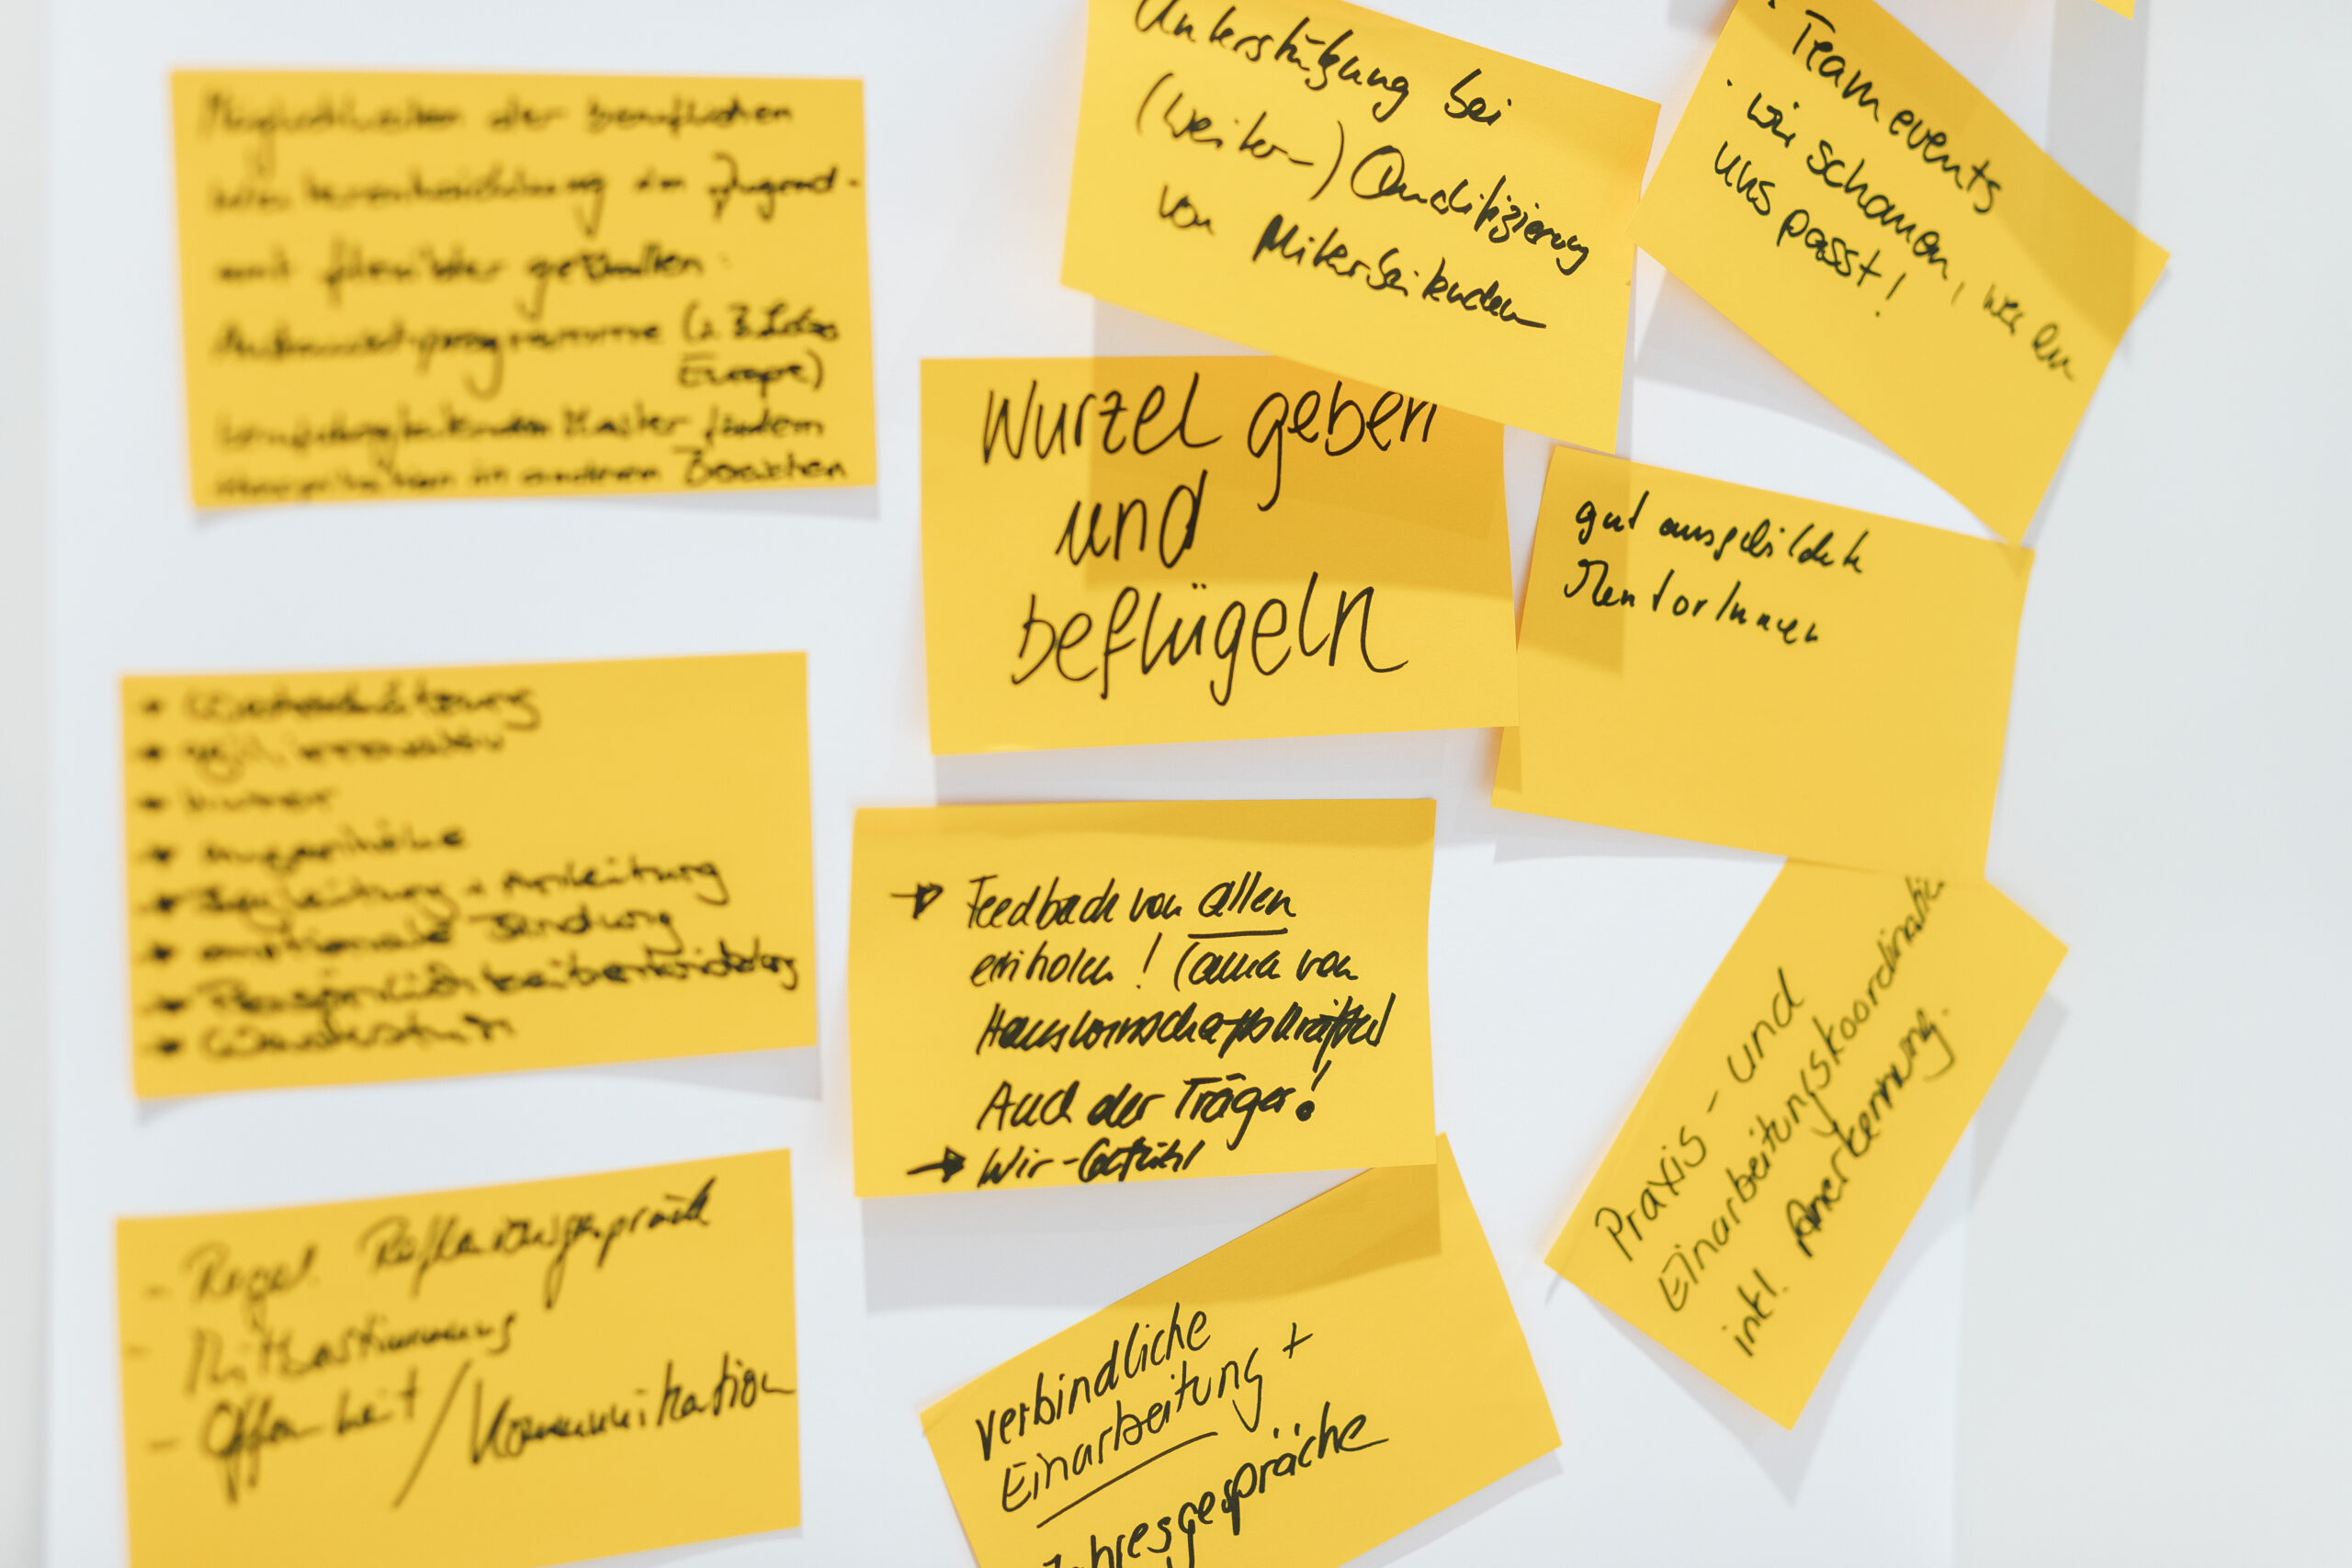 Möglichkeiten der beruflichen
Weiterentwicklung im Jugend-
mit flexibler gestalten
Austauschprogramme (z.B.
Europe)
berufsbegleitenden Master fördern
Hospitation in anderen Bereichen
Unterstützung bei
(Weiter-) Qualifizierung
von Mitarbeitenden
• Team events
• wir schauen, wer zu
uns passt!
Wurzel geben
und
beflügeln
gut ausgebildete
MentorInnen
→ Wertschätzung
→ agil, innovativ
→ Humor
→ Augenhöhe
→ Begleitung + Anleitung
→ emotionale Bindung
→ Persönlichkeitsentwicklung
→ Wachstum
→ Feedback von allen
einholen! (auch von
Hauswirtschaftskräften)
Auch der Träger!
→ Wir-Gefühl
Praxis- und
Einarbeitungskoordination
inkl. Anerkennung.
- Regel. Reflexionsgespräch
- Mitbestimmung
- Offenheit / Kommunikation
verbindliche
Einarbeitung +
Jahresgespräche